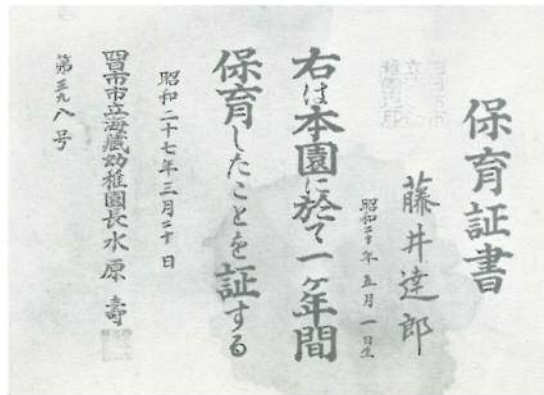 保育証書
藤井達郎
昭和二十年五月一日生
右は本園に於て一ヶ年間
保育したことを証する
昭和二十七年三月二十日
四日市市立海蔵幼稚園長水原壽
第 八号